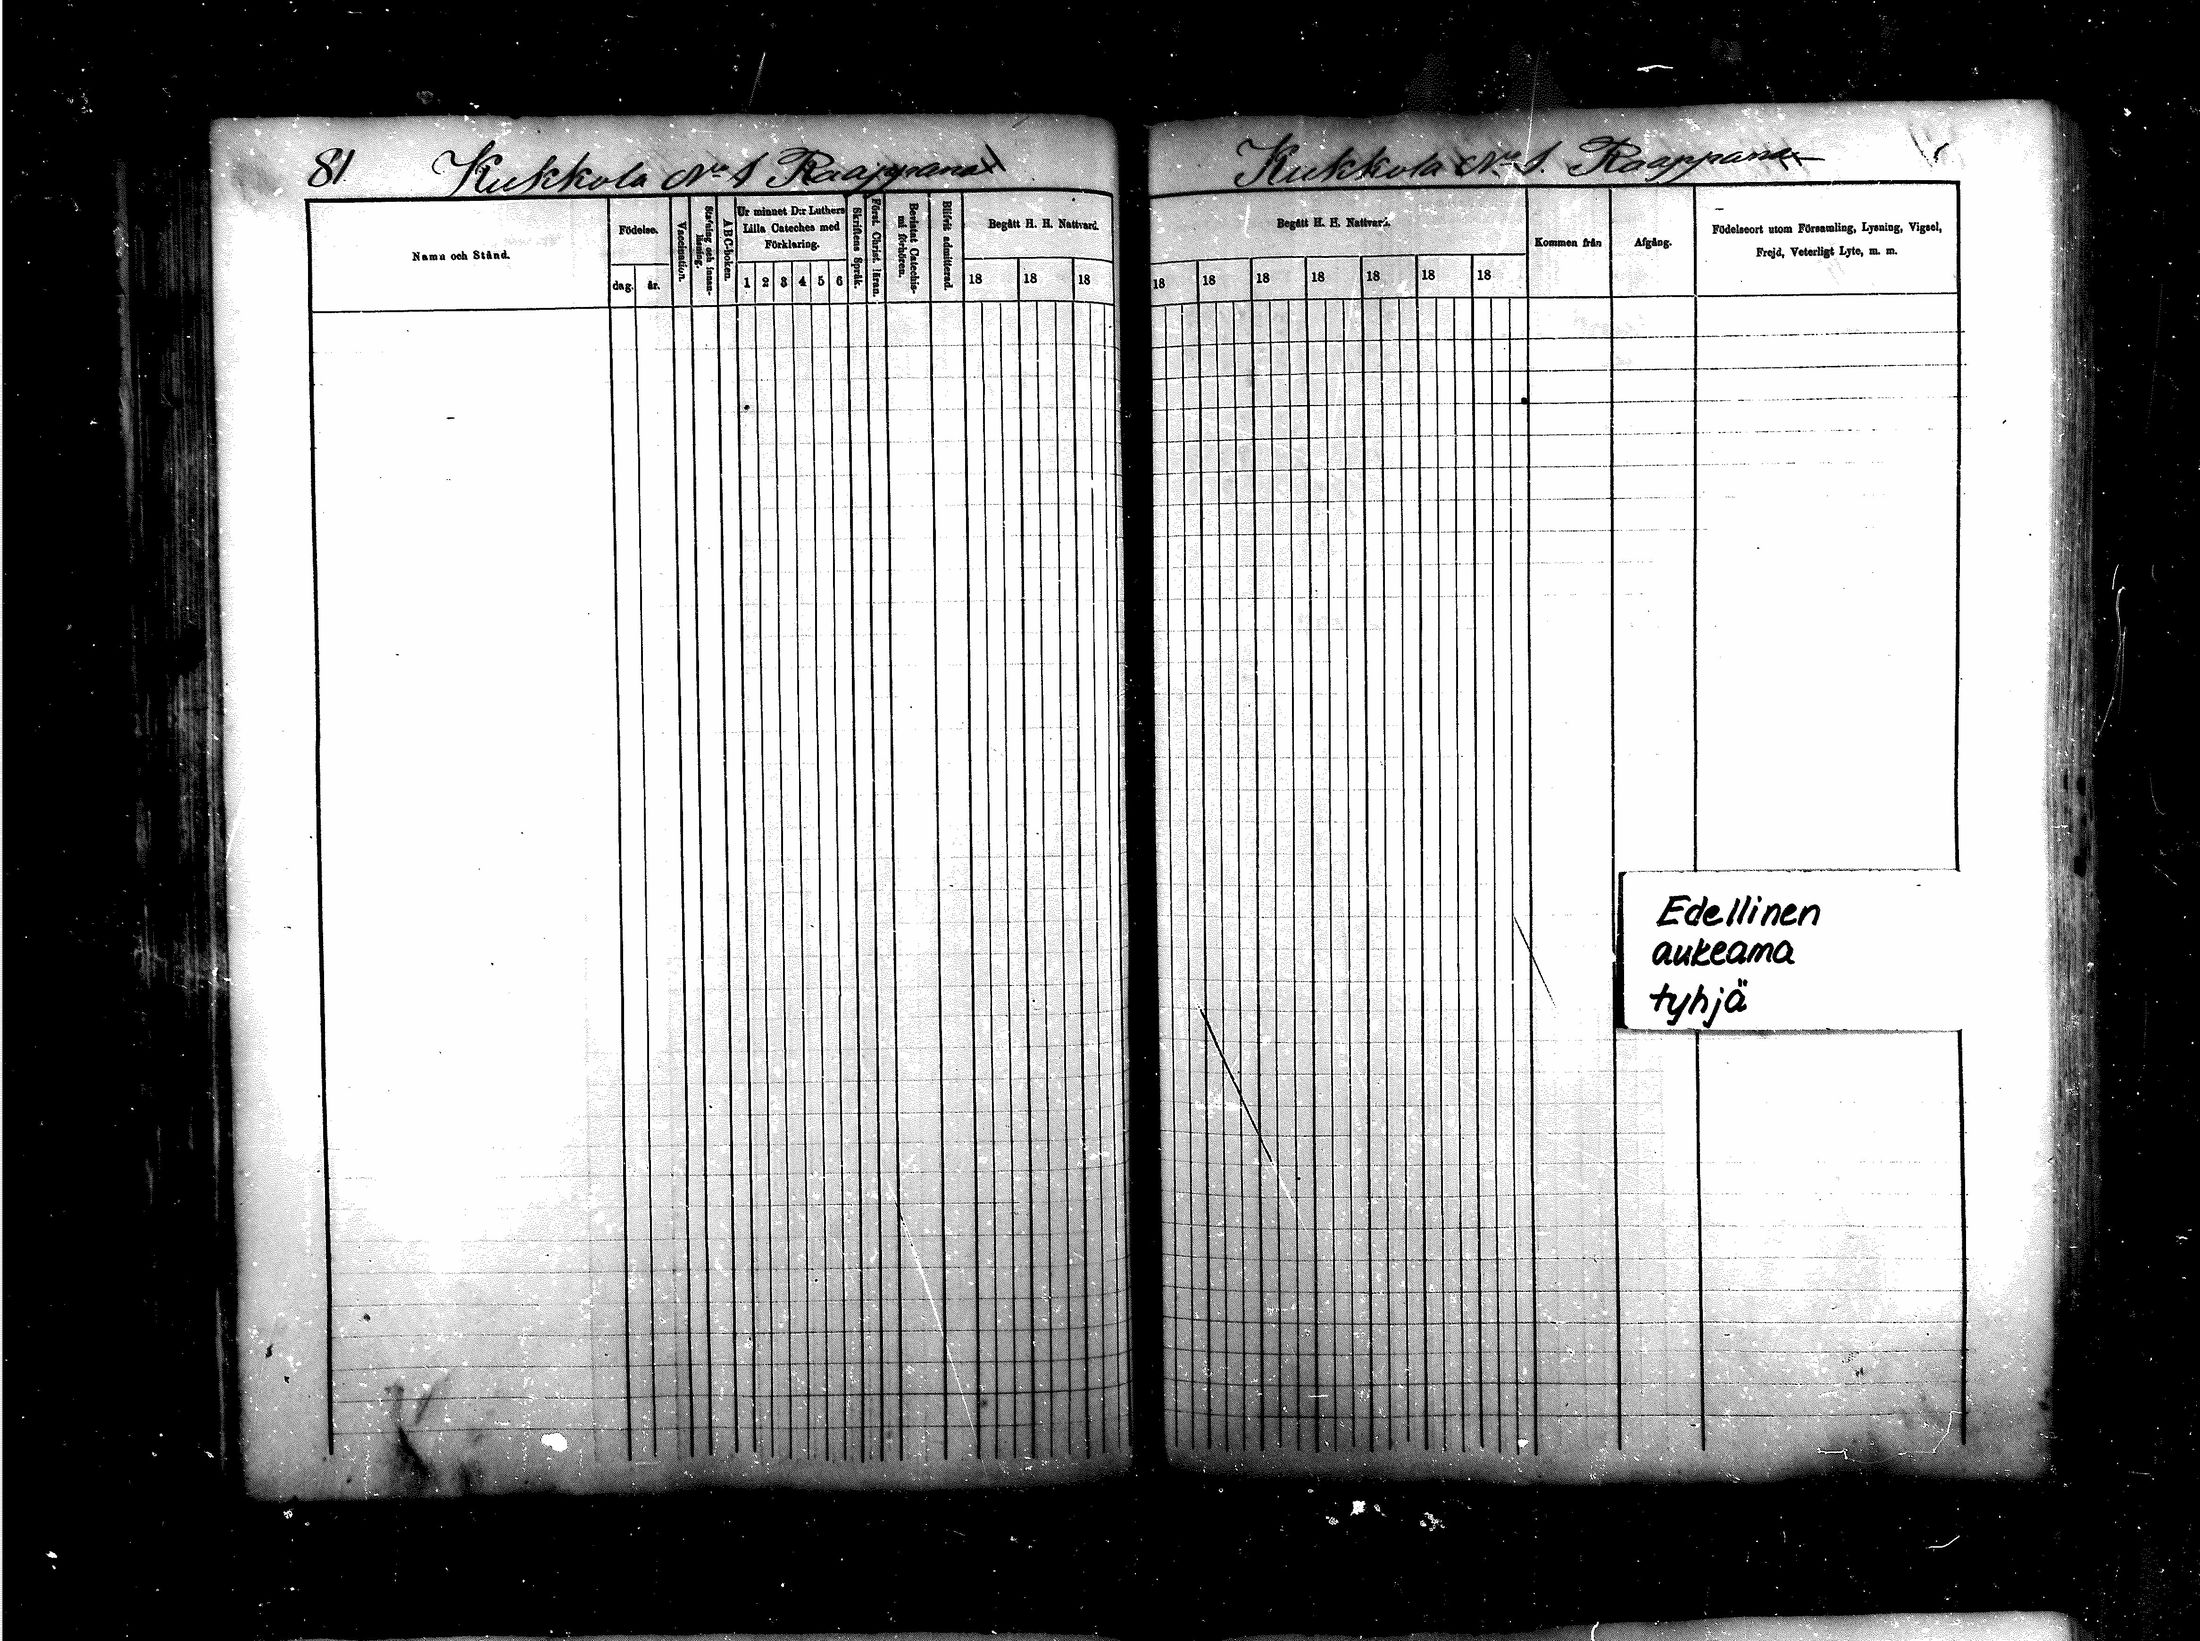 81 Kukkola No 1 Raappana
Namn och Stånd.
Födelse.
dag. år.
Vaccination.
Stafning och innan-
läsning.
ABC-boken.
Ur minnet D:r Luthers
Lilla Cateches med
Förklaring.
1 2 3 4 5 6
Skriftens Språk.
Först. Christ. läran.
Bevistat Catechis-
mi förhören.
Blifvit admitterad.
Begått H. H. Nattvard.
18 18 18
Kukkola No 1. Raappana
Begått H. H. Nattvard.
18 18 18 18 18 18 18
Kommen från
Afgång.
Födelseort utom Församling, Lysning, Vigsel,
Frejd, Veterligt Lyte, m. m.
Edellinen
aukeama
tyhjä